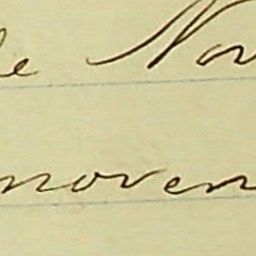 le Nov
noven